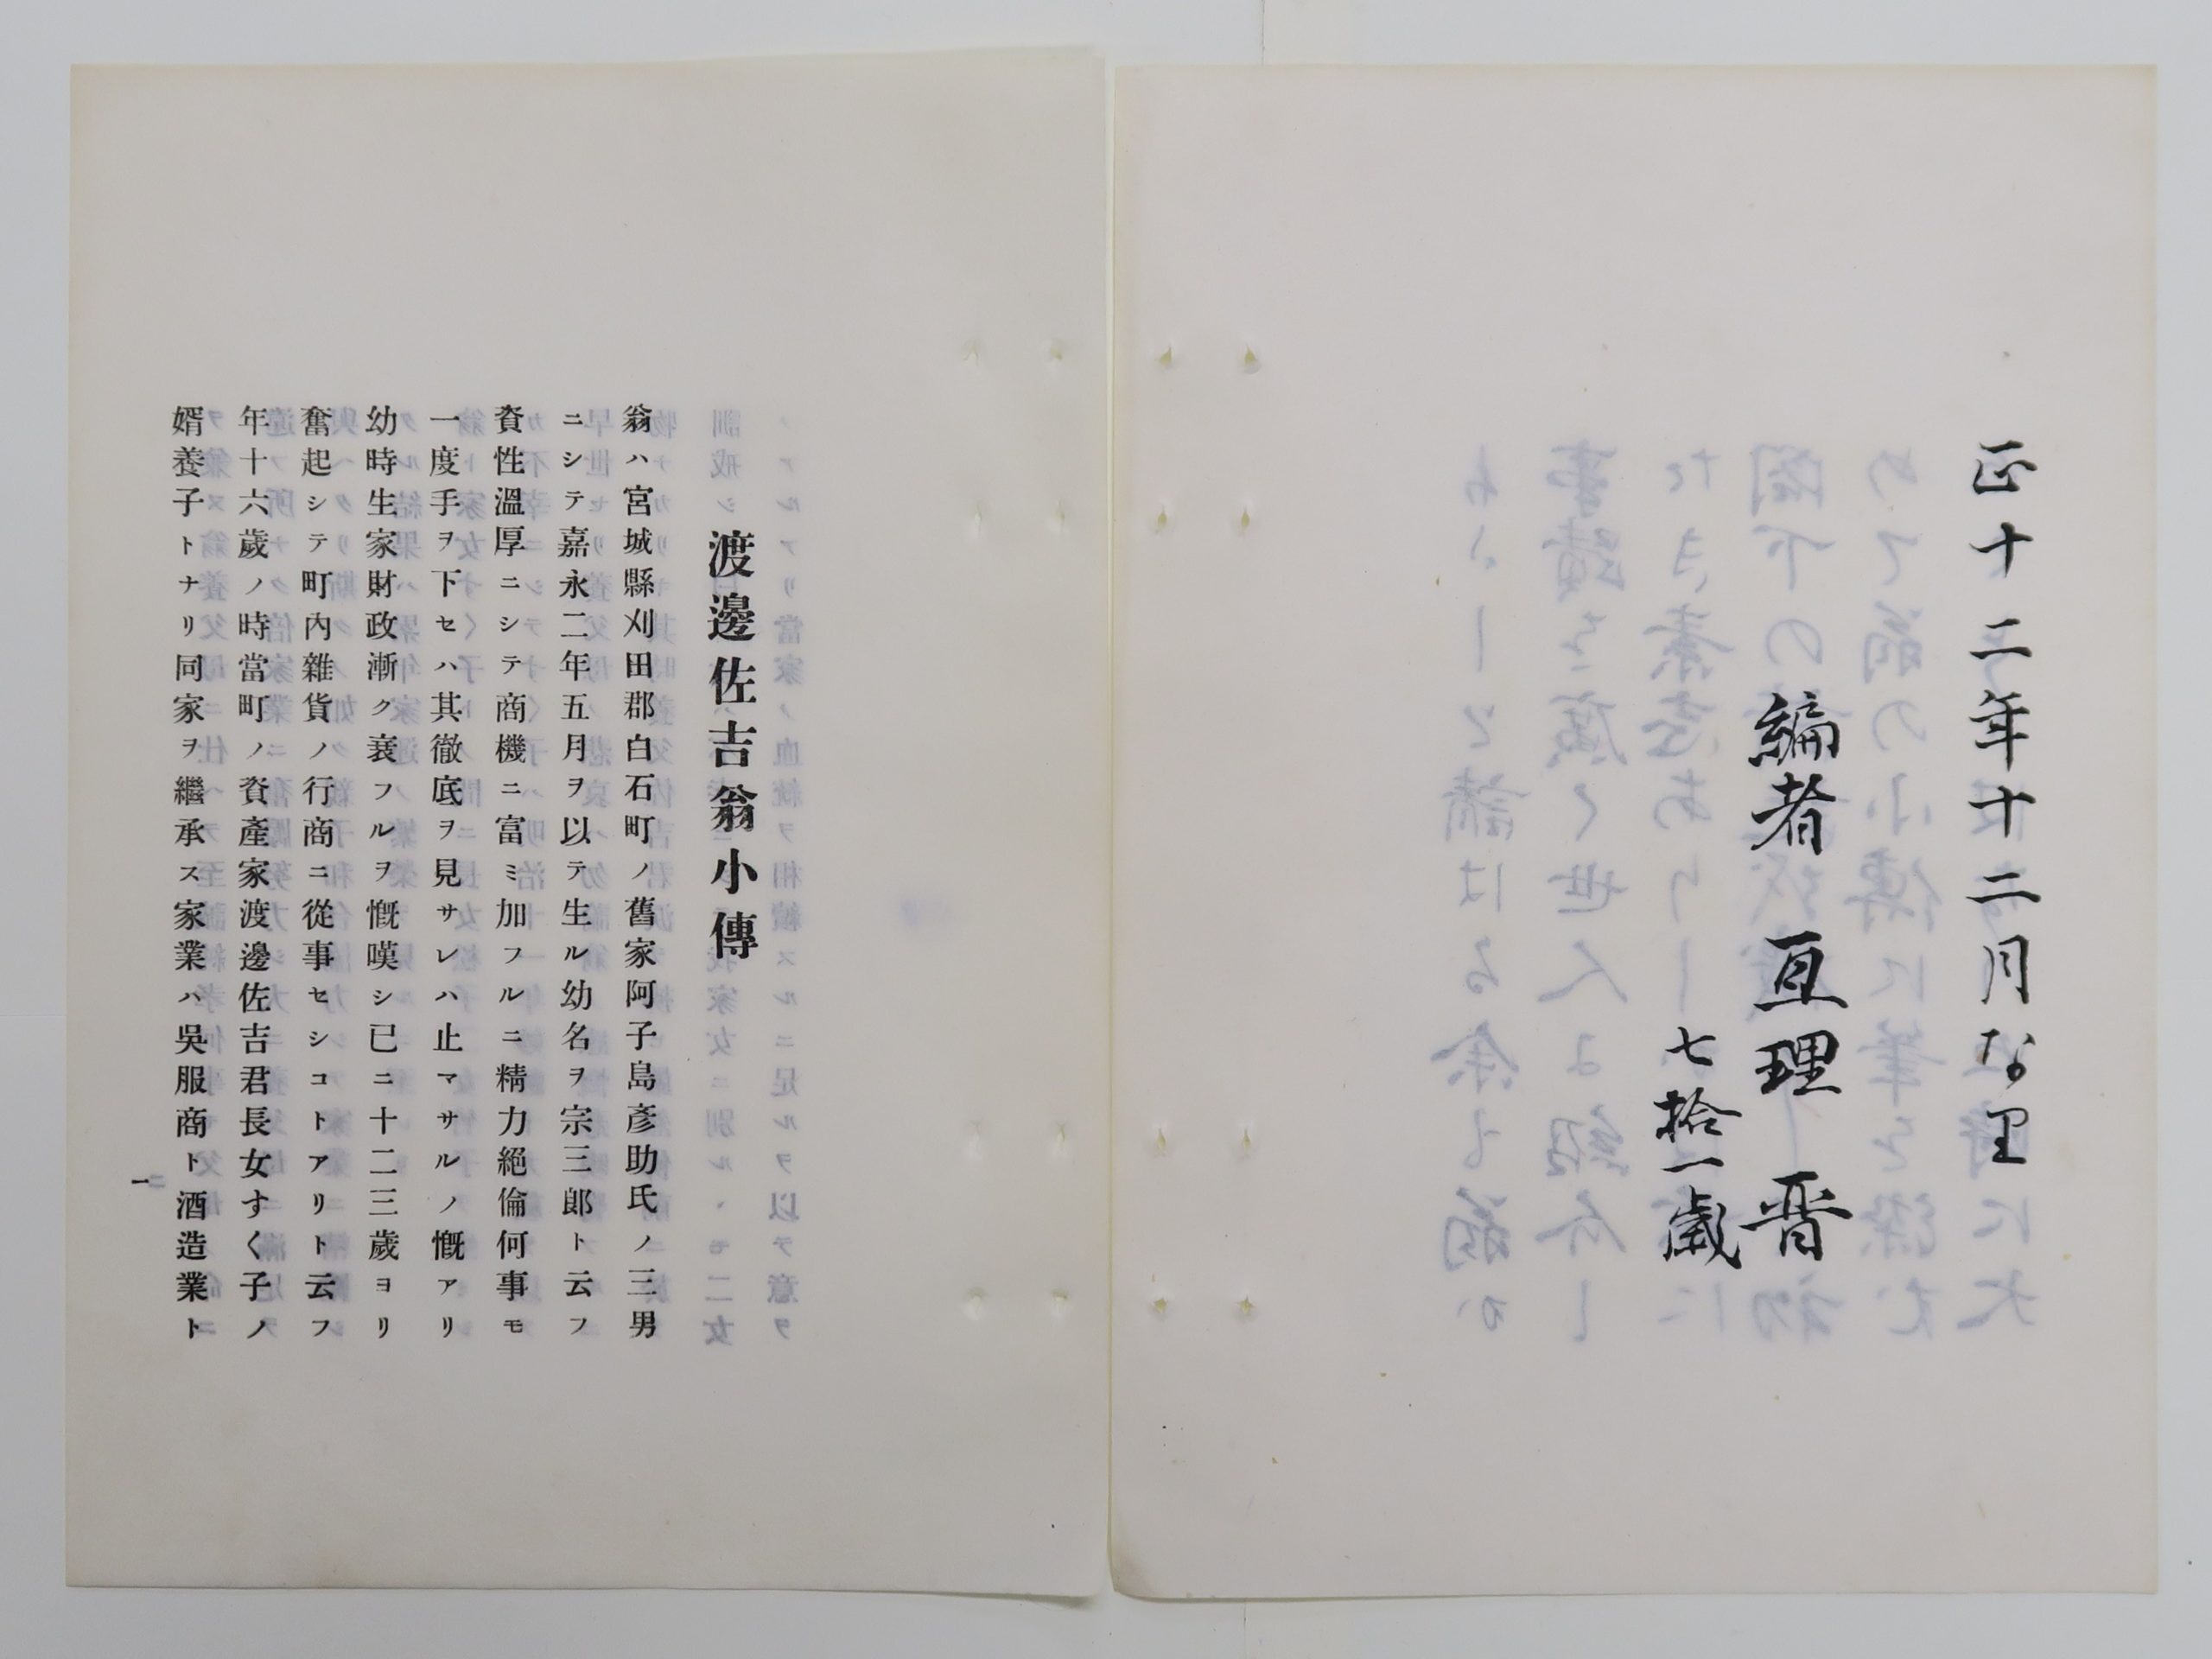 正十二年十二月な里
編者 亘理 晋
七拾一歳
渡邊佐吉翁小傳
翁ハ宮城縣刈田郡白石町ノ舊家阿子島彥助氏ノ三男
ニシテ嘉永二年五月ヲ以テ生ル幼名ヲ宗三郎ト云フ
資性溫厚ニシテ商機ニ富ミ加フルニ精力絕倫何事モ
一度手ヲ下セハ其徹底ヲ見サレハ止マサルノ慨アリ
幼時生家財政漸ク衰フルヲ慨嘆シ已ニ十二三歲ヨリ
奮起シテ町內雜貨ノ行商ニ從事セシコトアリト云フ
年十六歲ノ時當町ノ資產家渡邊佐吉君長女すく子ノ
婿養子トナリ同家ヲ繼承ス家業ハ吳服商ト酒造業ト
一